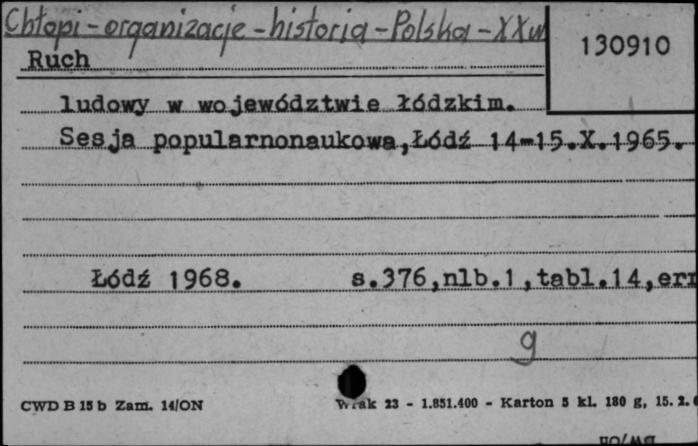 Chłopi - organizacje - historia - Polska - XX w
130910
Ruch
ludowy w województwie łódzkim.
Sesja popularnonaukowa,Łódź 14-15.X.1965.
Łódź 1968. s.376,nlb.1,tabl.14,err
g
CWD B 15 b Zam. 14/ON Wrak 23 - 1.851.400 - Karton 5 kl. 180 g, 15. 2. 6